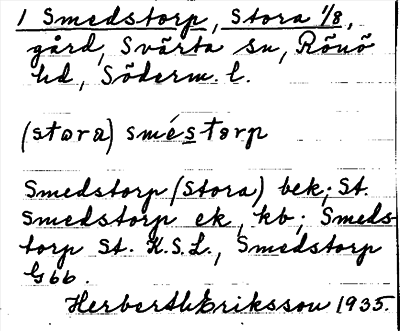 1 Smedstorp, Stora 1/8,
gård, Svärta sn, Rönö
hd, Söderm. l.
(stora) smésto̱rp
Smedstorp (Stora) bek; St.
Smedstorp ek, kb; Smeds-
torp St. K.S.L., Smedstorp
Gbb.
Herberth Eriksson 1935.